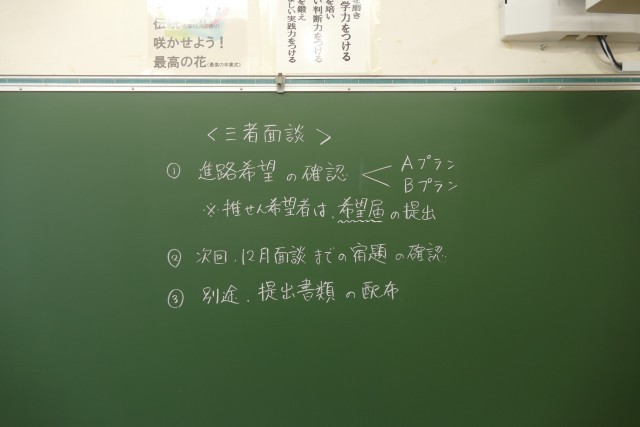 咲かせよう!
最高の花(最高の卒業式)
を磨き
学力をつける
を培い
い判断力をつける
を鍛え
しい実践力をつける
<三者面談>
① 進路希望の確認 < Aプラン
Bプラン
※推せん希望者は、希望届の提出
② 次回、12月面談までの宿題の確認
③ 別途、提出書類の配布